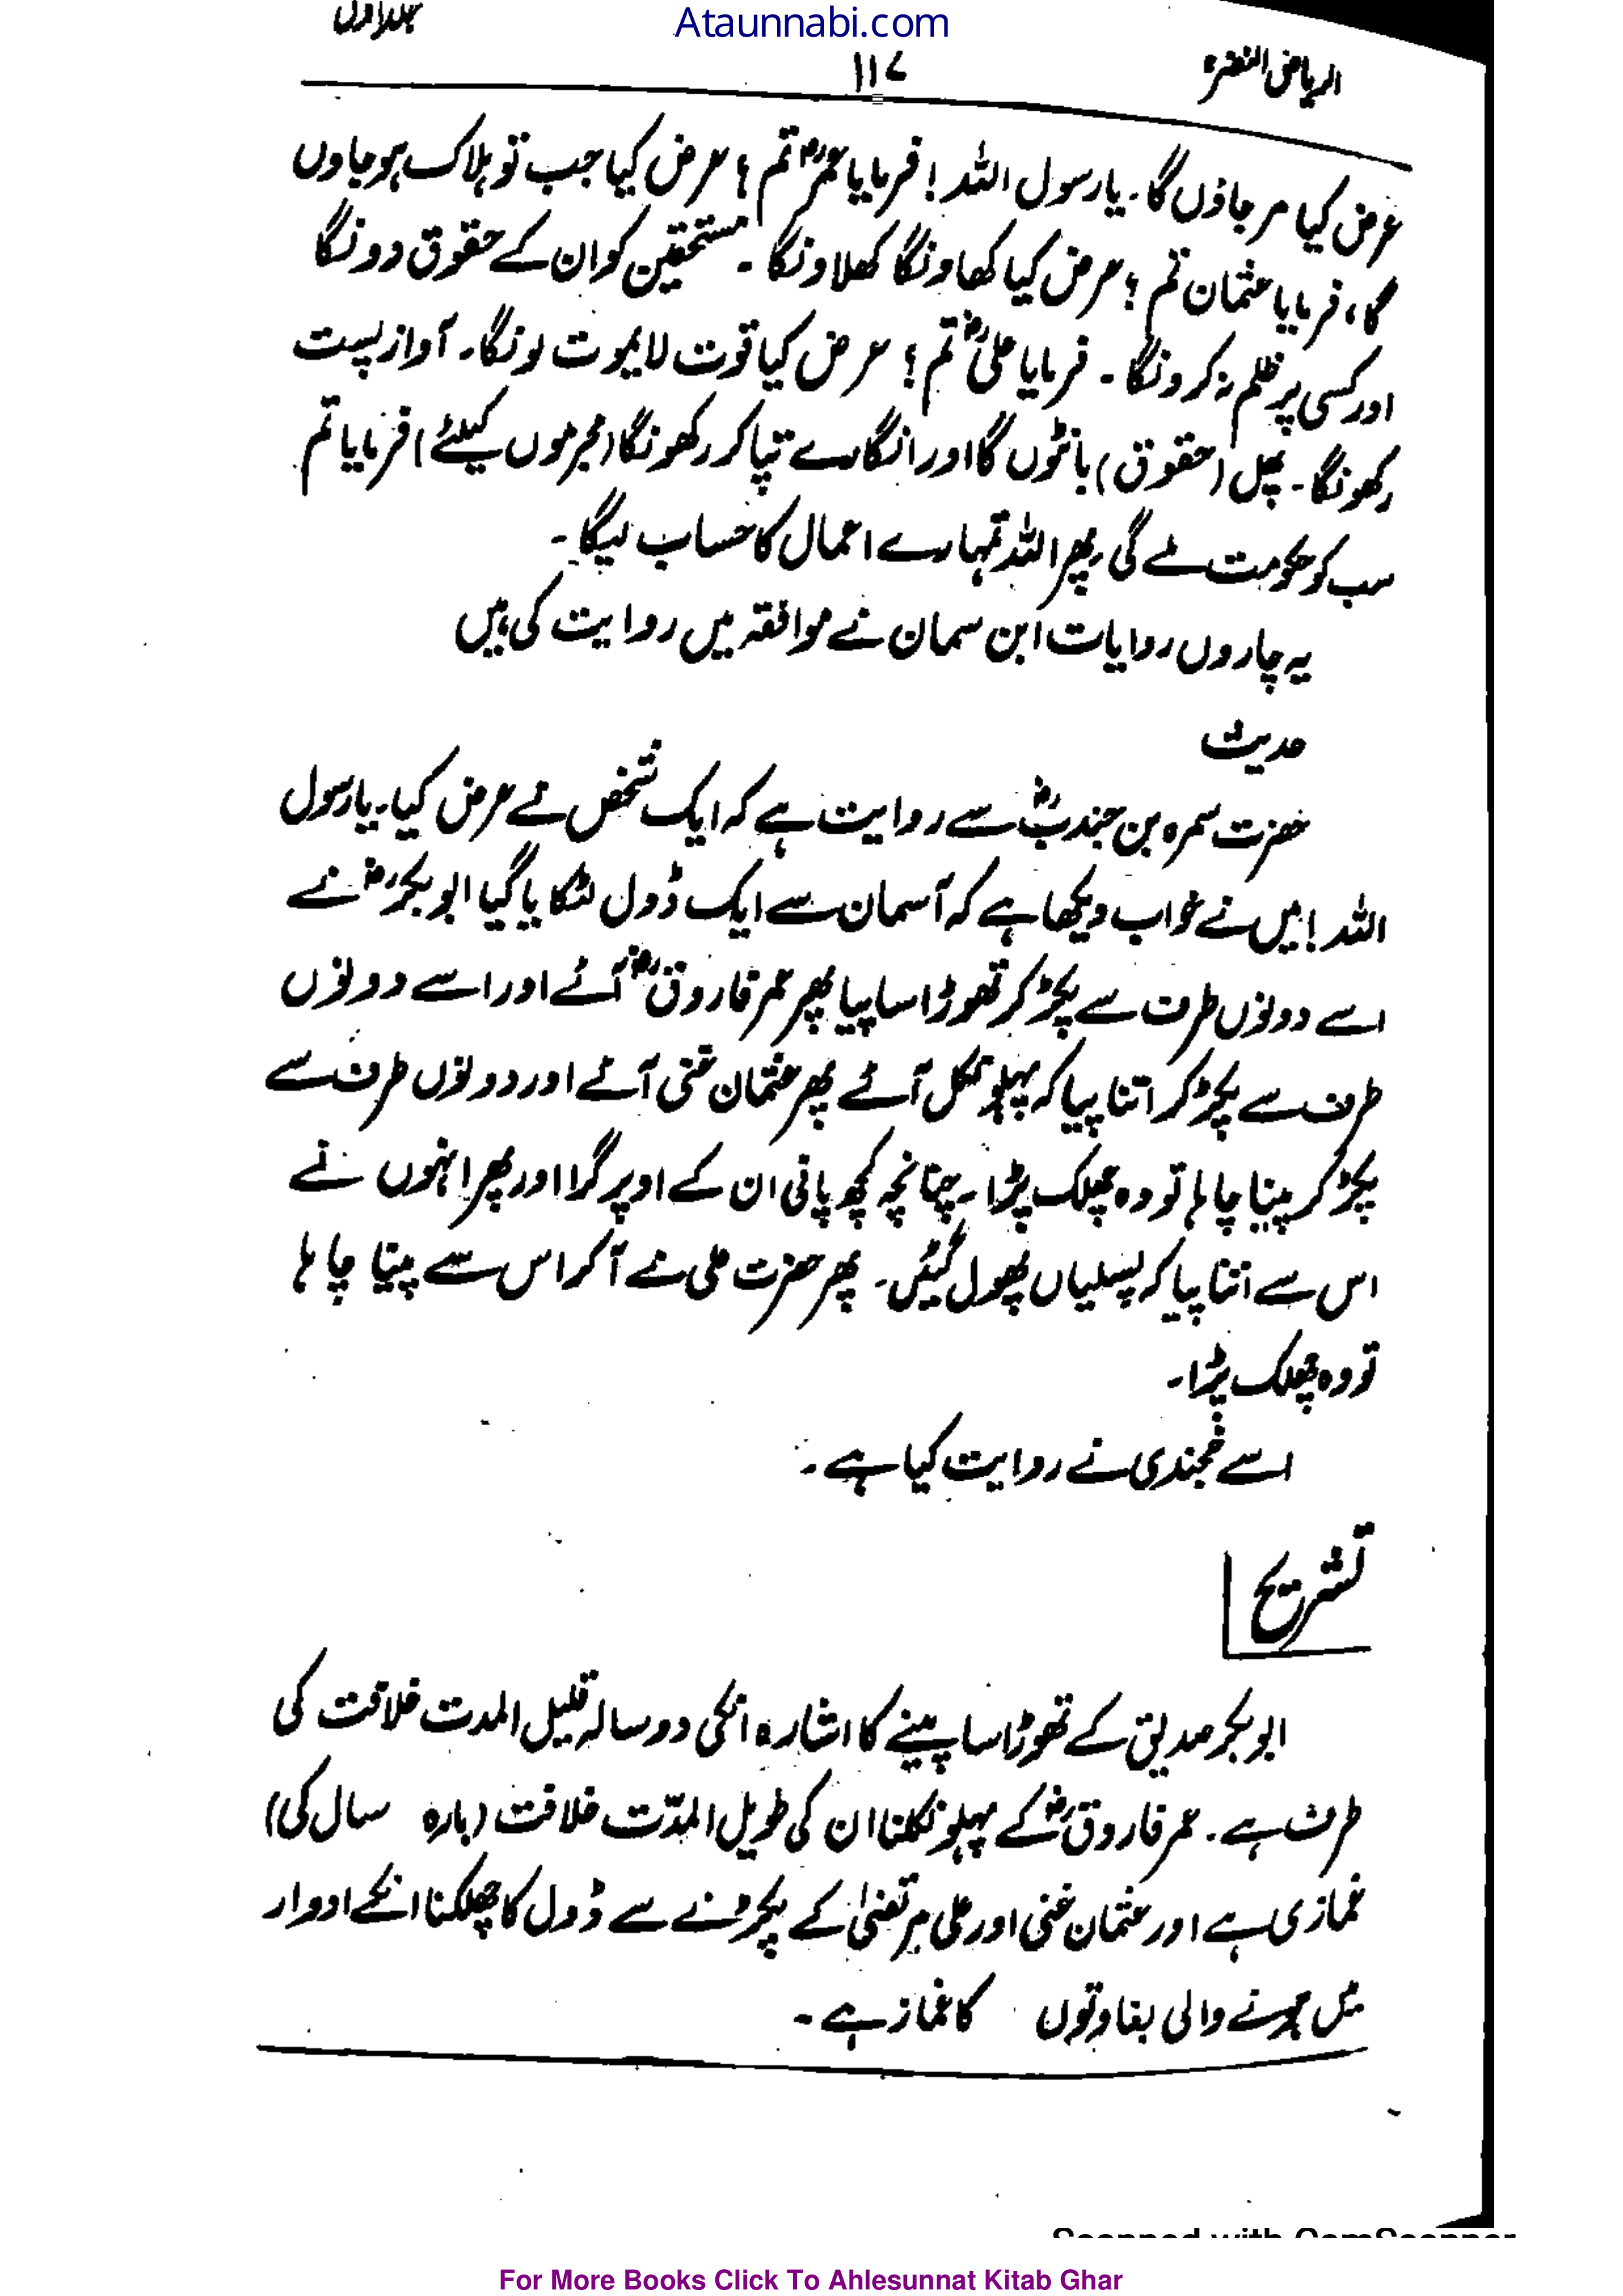 Ataunnabi.com
الریاض النضرہ ۱۱۷ جلد اول
عرض کیا مر جاؤں گا۔ یا رسول اللہ! فرمایا عمرؓ تم؟ عرض کیا جب تو ہلاک ہو جاوں
گا، فرمایا عثمان تم؟ عرض کیا کھاونگا کھلاونگا۔ مستحقین کو ان کے حقوق دونگا
اور کسی پر ظلم نہ کرونگا۔ فرمایا علیؓ تم؟ عرض کیا قوت لایموت لونگا۔ آواز پست
رکھونگا۔ پھل (حقوق) بانٹوں گا اور انگارے تپا کر رکھونگا (مجرموں کیلئے) فرمایا تم
سب کو حکومت ملے گی پھر اللہ تمہارے اعمال کا حساب لیگا۔
یہ چاروں روایات ابن سمان نے موافقہ میں روایت کی ہیں
حدیث
حضرت سمرہ بن جندبؓ سے روایت ہے کہ ایک شخص نے عرض کیا۔ یا رسول
اللہ! میں نے خواب دیکھا ہے کہ آسمان سے ایک ڈول لٹکایا گیا ابو بکرؓ نے
اسے دونوں طرف سے پکڑ کر تھوڑا سا پیا پھر عمر فاروقؓ آئے اور اسے دونوں
طرف سے پکڑ کر اتنا پیا کہ پہلو نکل آئے پھر عثمان غنی آئے اور دونوں طرف سے
پکڑ کر پینا چاہا تو وہ چھلک پڑا۔ چنانچہ کچھ پانی ان کے اوپر گرا اور پھر انہوں نے
اس سے اتنا پیا کہ پسلیاں پھول گئیں۔ پھر حضرت علی نے آکر اس سے پینا چاہا
تو وہ چھلک پڑا۔
اسے خجندی نے روایت کیا ہے۔
تشریح
ابو بکر صدیق کے تھوڑا سا پینے کا اشارہ انکی دو سالہ قلیل المدت خلافت کی
طرف ہے۔ عمر فاروقؓ کے پہلو نکلنا ان کی طویل المدّت خلافت (بارہ سال کی)
غمازی ہے اور عثمان غنی اور علی مرتضیٰ کے پکڑنے سے ڈول کا چھلکنا انکے ادوار
میں ہونے والی بغاوتوں کا غماز ہے۔
Scanned with CamScanner
For More Books Click To Ahlesunnat Kitab Ghar